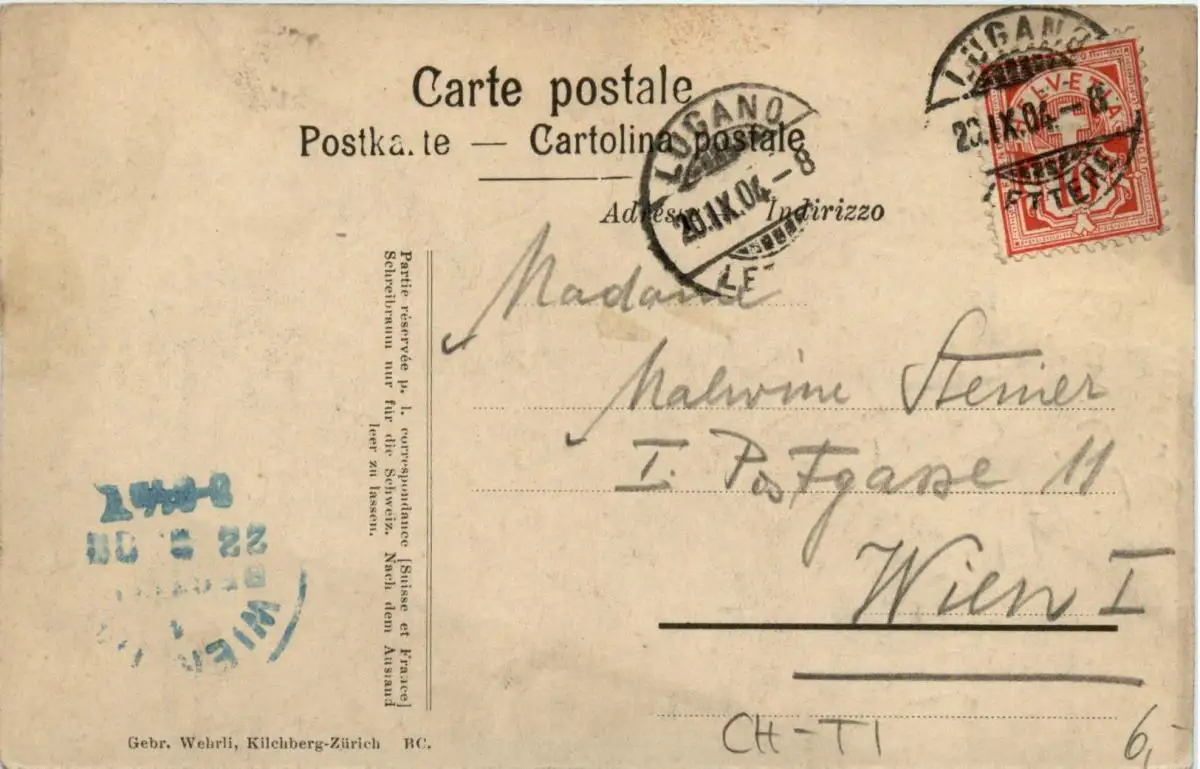 Carte postale
Postkarte — Cartolina postale
Adresse — Indirizzo
LUGANO
20.IX.04-8
LETTERE
HELVETIA
LUGANO
20.IX.04-8
LET
Partie réservée p. l. correspondance [Suisse et France]
Schreibraum nur für die Schweiz. Nach dem Ausland
leer zu lassen.
Madame
Malwine Steiner
I. Postgasse 11
Wien I
WIEN
Gebr. Wehrli, Kilchberg-Zürich BC.
CH-TI
6,-